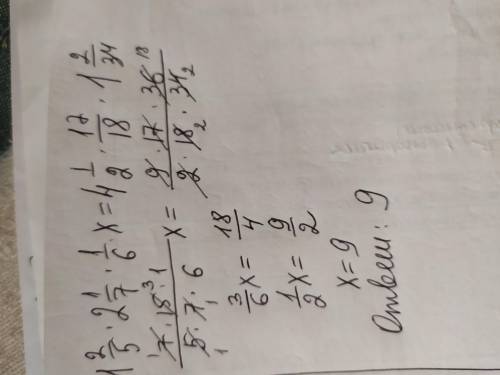 1 2/5 · 2 1/7 · 1/6 · x = 4 1/2 · 17/18 · 1 2/34
7 · 15 3 · 1 / 5 1 · 7 1 · 6 x = 9 · 17 · 36 18 / 2 · 18 2 · 34 2
3/6 x = 18/4
1/2 x = 9/2
x = 9
Ответ: 9